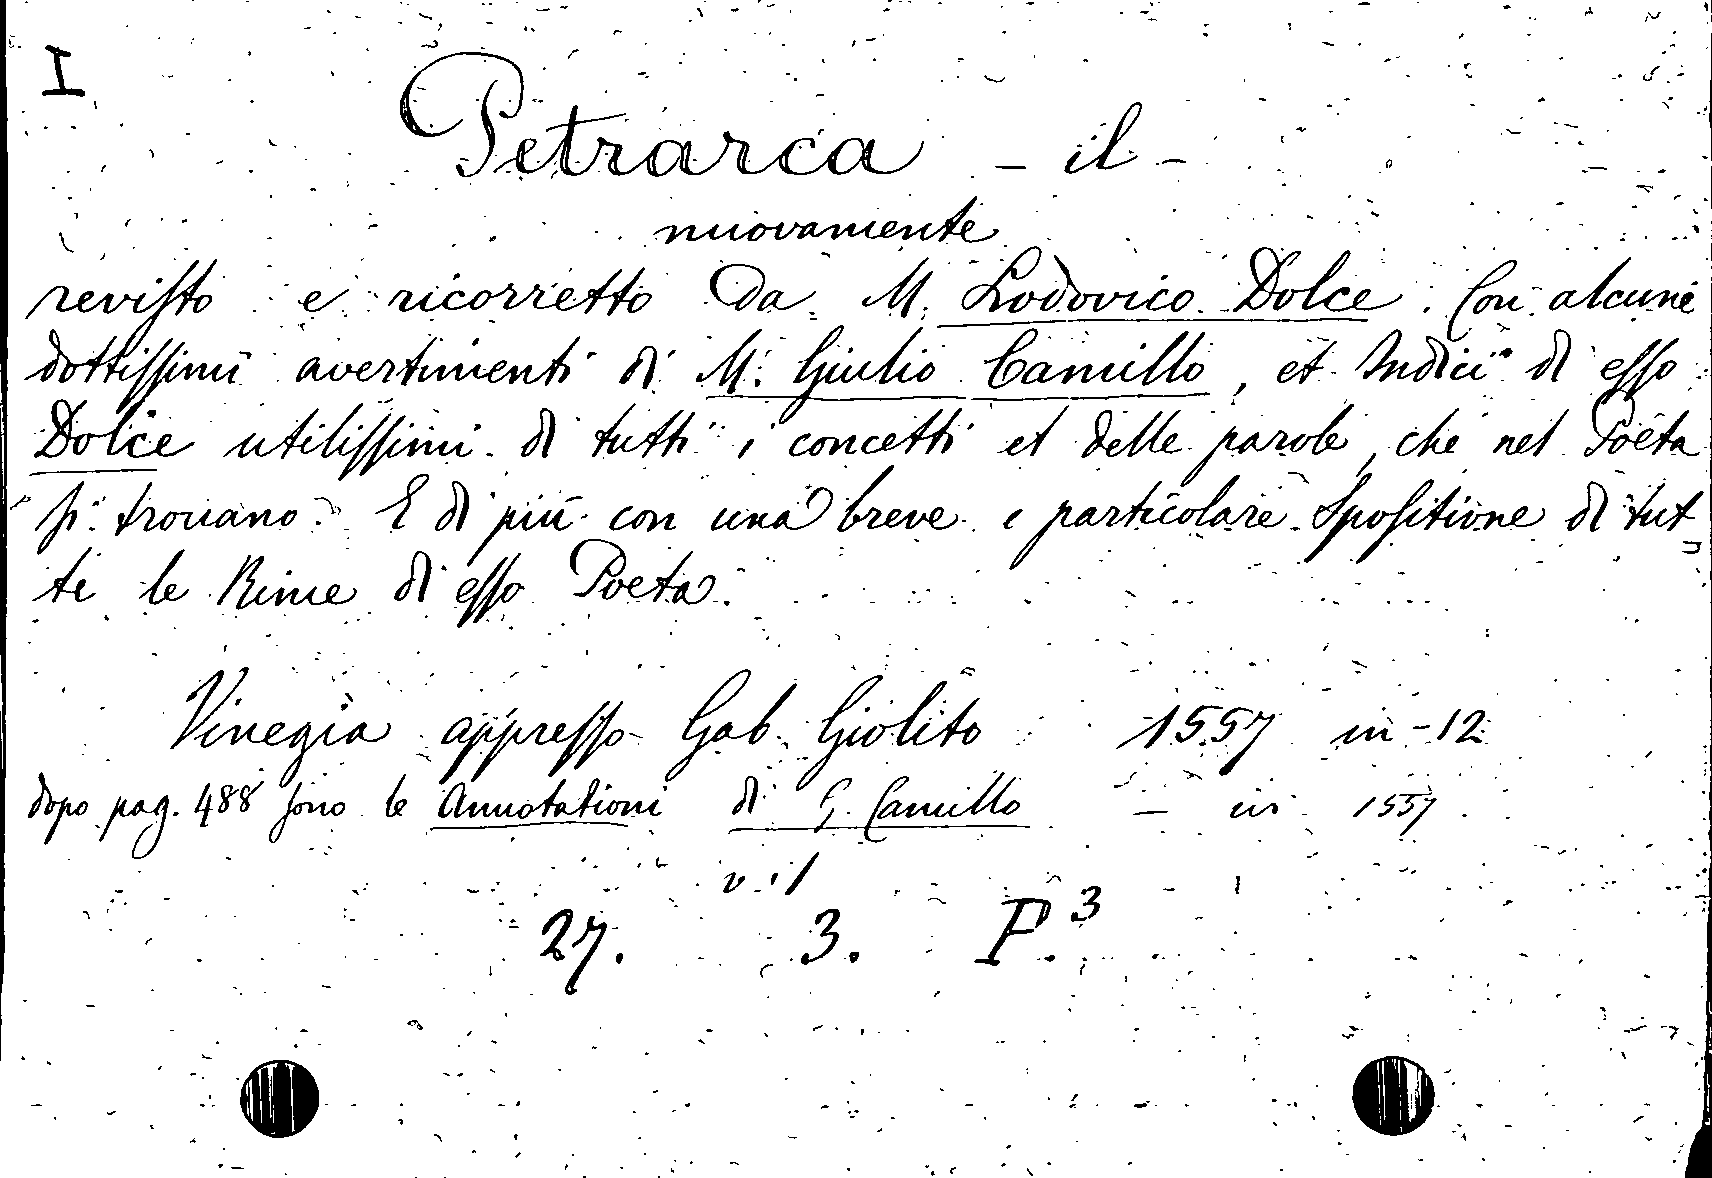 I
Petrarca - il -
nuovamente
reviſto e ricorretto da M. Lodovico Dolce. Con alcuni
dottiſſimi avertimenti di M. Giulio Camillo, et Indici di eſſo
Dolce utiliſſimi di tutti i concetti et delle parole, che nel Poeta
ſi trouano. E di più con una breve e particolare Spoſitione di tut-
te le Rime di eſſo Poeta.
Vinegia appreſſo Gab. Giolito 1557 in-12
dopo pag. 488 ſono le Annotationi di G. Camillo - in 1557.
27. 3. P.3